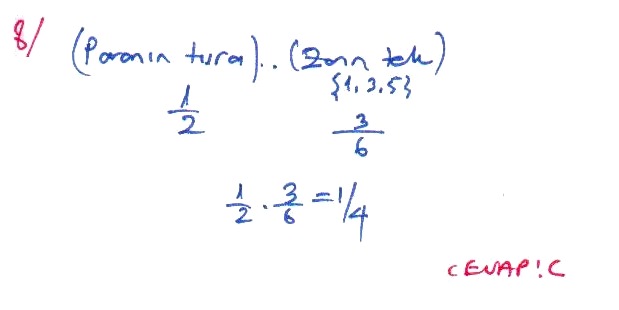 8/ (Paranın tura) . . (Zarın tek)
{1, 3, 5}
1/2 3/6
1/2 . 3/6 = 1/4
CEVAP : C